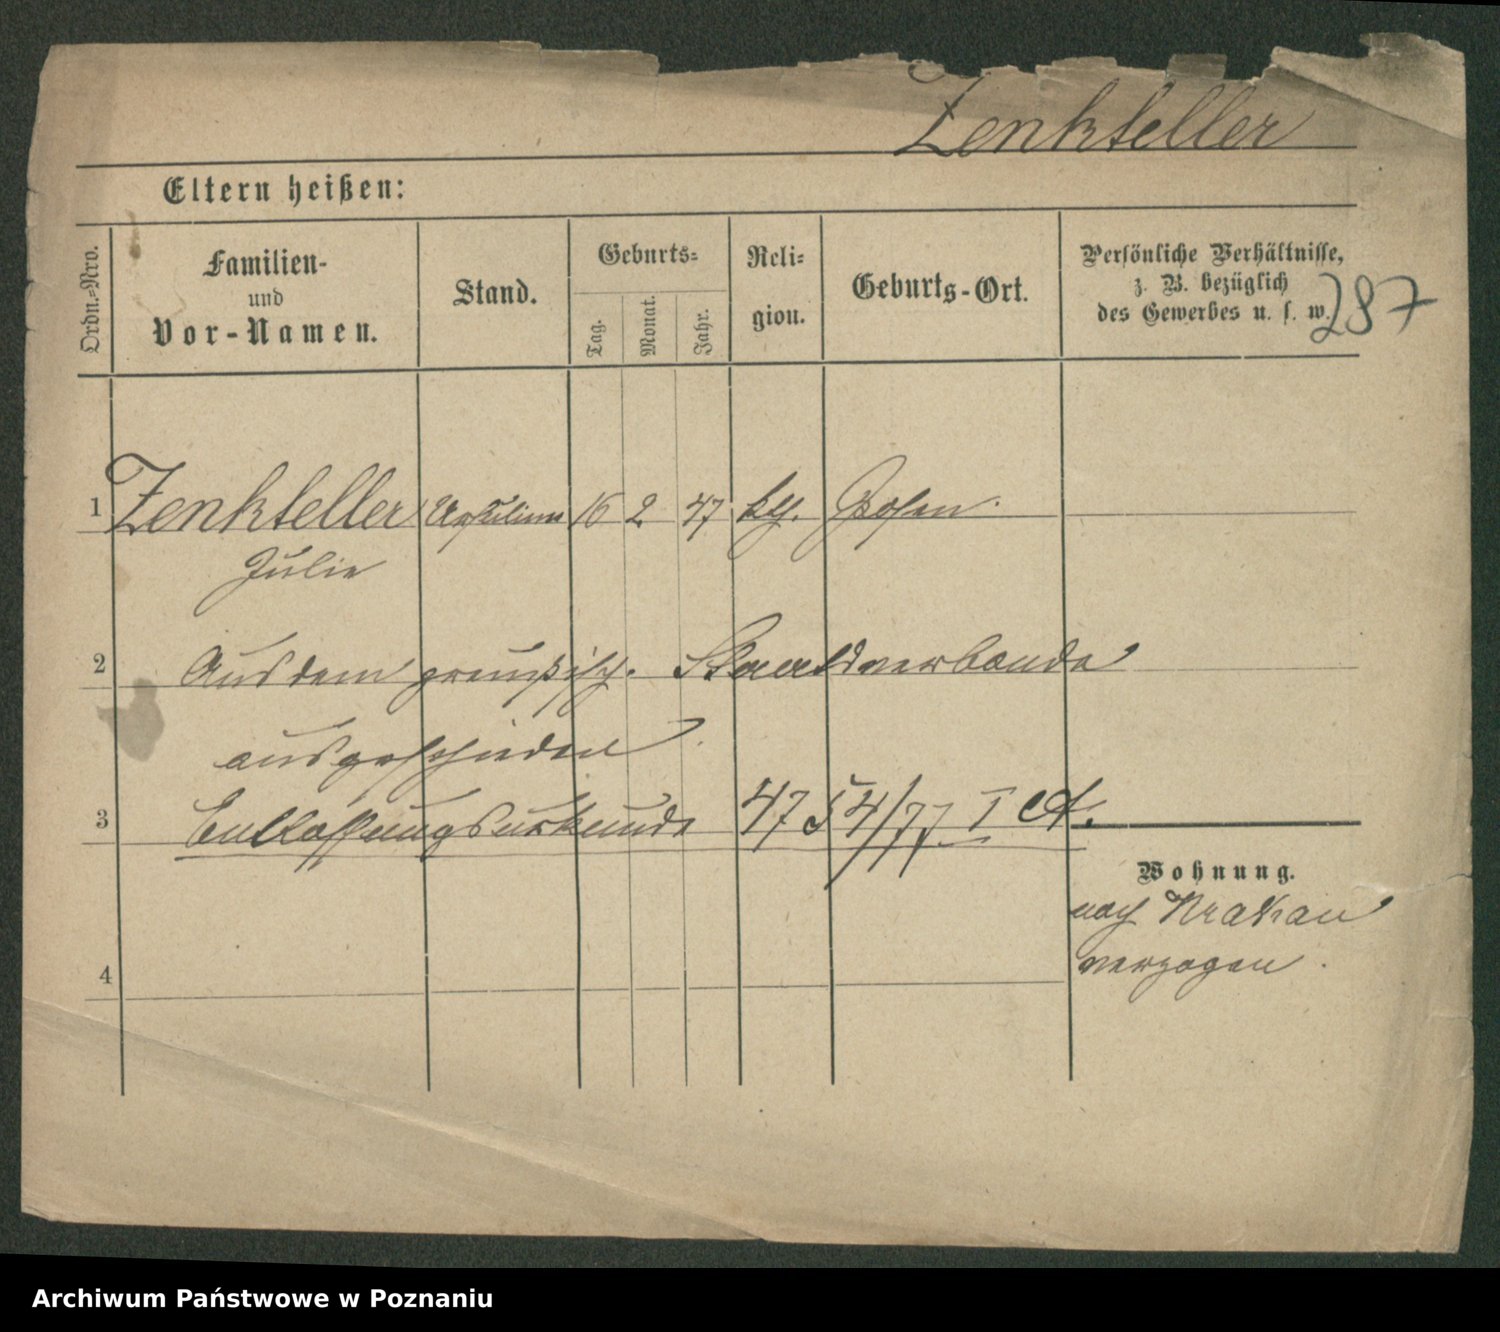 Zenkteller
Eltern heißen:
Ordn.=Nro.
Familien-
und
Vor-Namen.
Stand.
Geburts=
Tag.
Monat.
Jahr.
Reli=
gion.
Geburts-Ort.
Persönliche Verhältnisse,
z. B. bezüglich
des Gewerbes u. s. w.
287
1 Zenkteller Ursulinin 16 2 47 kth. Posen.
Julie
2 Aus dem preußisch. Staatsverbande
ausgeschieden.
3 Entlassungsurkunde 4754/77 I A.
Wohnung.
nach Krakau
verzogen.
4
Archiwum Państwowe w Poznaniu